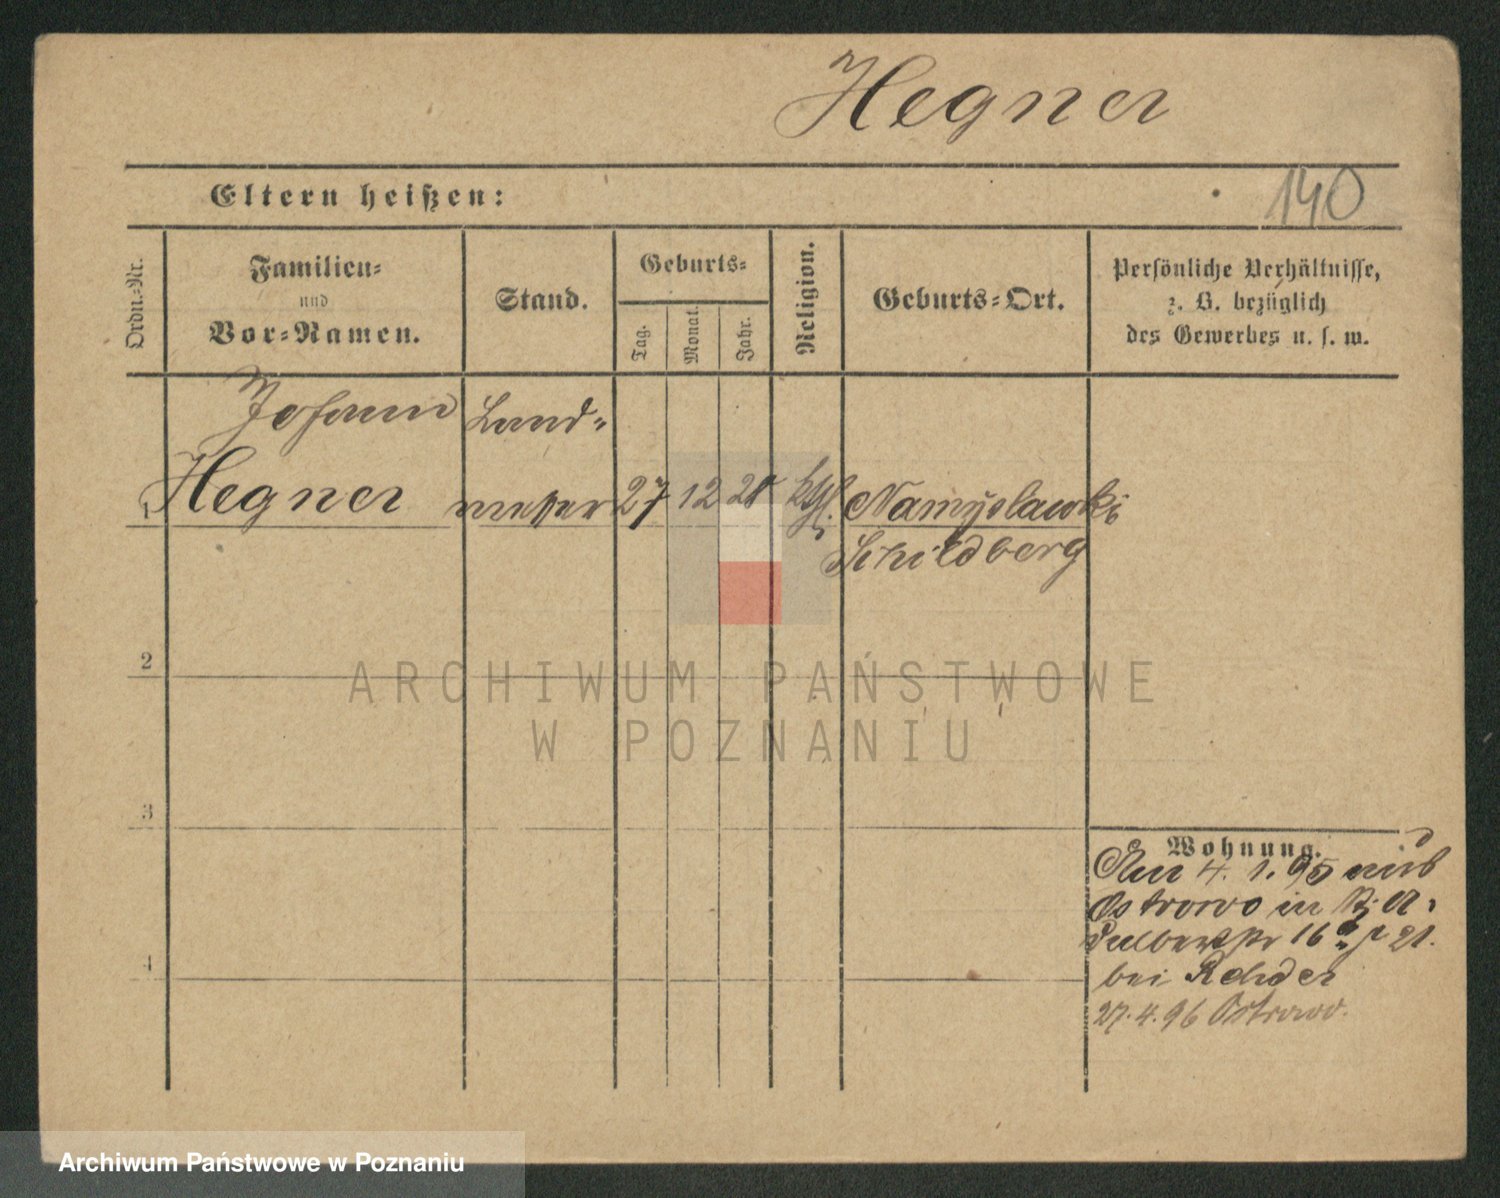 Hegner
Eltern heißen:
140
Ordn.-Nr.
Familien-
und
Vor-Namen.
Stand.
Geburts-
Tag.
Monat.
Jahr.
Religion.
Geburts-Ort.
Persönliche Verhältnisse,
z. B. bezüglich
des Gewerbes u. s. w.
Johann Land-
1 Hegner messer 27 12 kth. Namyslawki
Schildberg
2
ARCHIWUM PAŃSTWOWE
W POZNANIU
3
Wohnung.
Am 4. 1. 95 aus
Ostrowo in
16 21.
bei Rehder
27. 4. 96 Ostrowo.
4
Archiwum Państwowe w Poznaniu